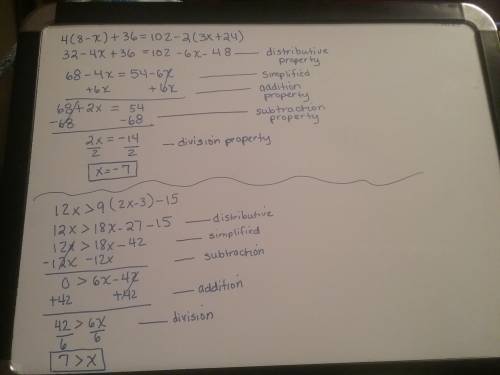 4(8-x)+36=102-2(3x+24)
32-4x+36=102-6x-48 — distributive property
68-4x=54-6x — simplified
+6x +6x — addition property
68+2x = 54
-68 -68 — subtraction property
2x = -14 — division property
2 2
x=-7
12x>9(2x-3)-15
12x>18x-27-15 — distributive
12x>18x-42 — simplified
-12x -12x — subtraction
0 > 6x-42
+42 +42 — addition
42 > 6x — division
6 6
7>x